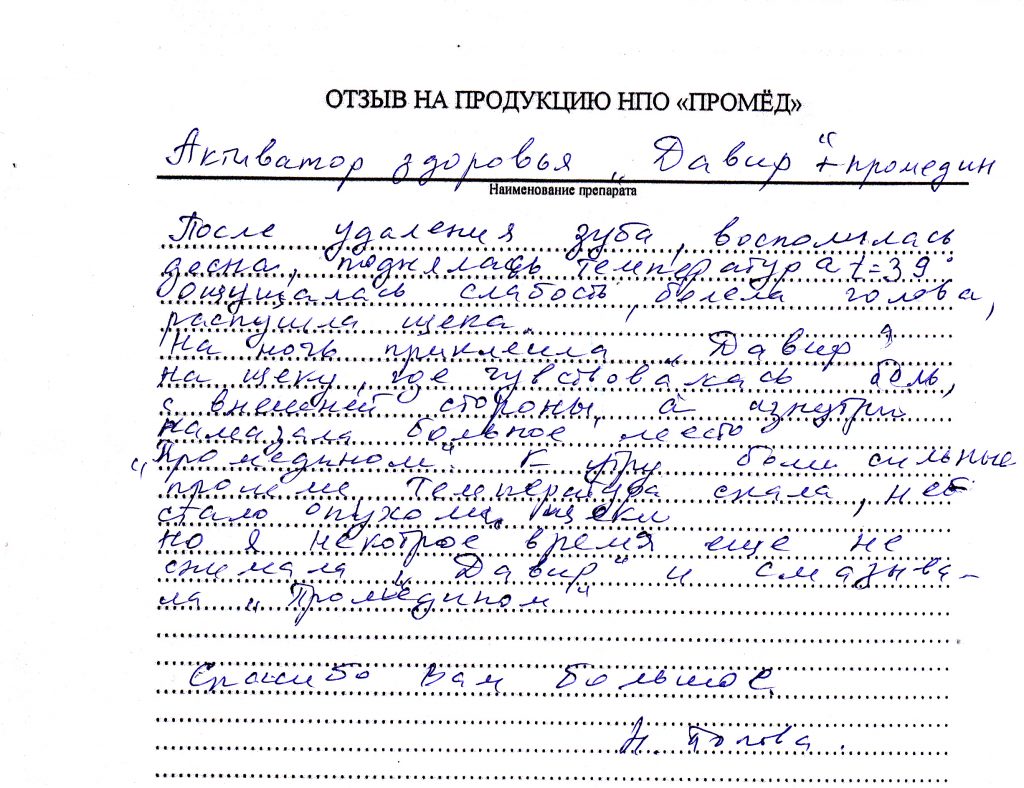 ОТЗЫВ НА ПРОДУКЦИЮ НПО «ПРОМЁД»
Активатор здоровья „Давир“ + промедин
Наименование препарата
После удаления зуба, восполилась
десна, поднялась температура t=39°
ощущалась слабость, болела голова,
распушла щека.
На ночь приклеила „Давир“
на щеку, где чувствовалась боль,
с внешней стороны, а изнутри
намазала больное место
„Промедином“. К утру боли сильные
прошли, температура спала, не
стало опухоли щеки
но я некоторое время еще не
снимала „Давир“ и смазыва-
ла „Промедином“
Спасибо Вам большое.
Н. Попова.